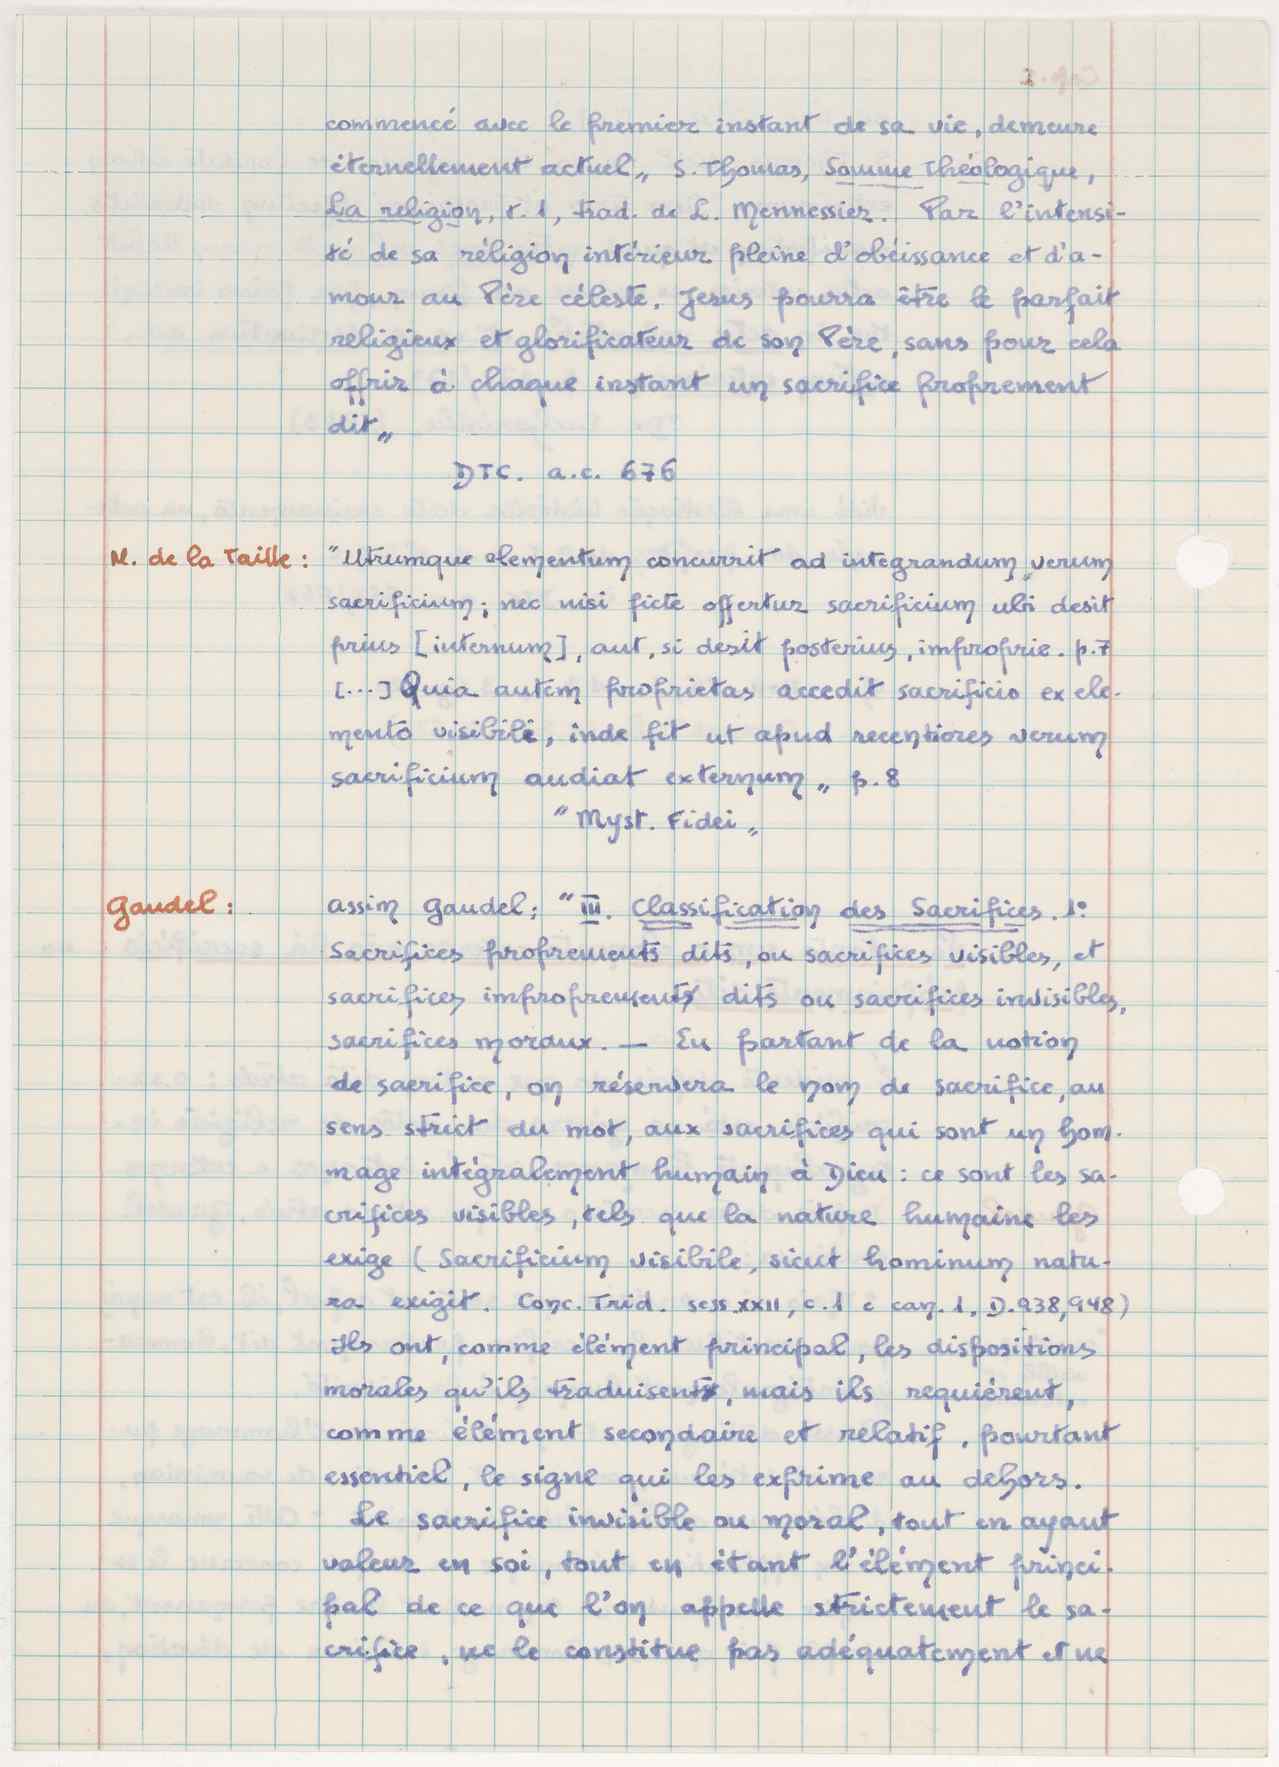 commencé avec le premier instant de sa vie, demeure
éternellement actuel„ S. Thomas, Somme Théologique,
La religion, t. 1, trad. de L. Mennessier. Par l'intensi-
té de sa réligion intérieur pleine d'obéissance et d'a-
mour au Père céleste, Jesus pourra être le parfait
religieux et glorificateur de son Père, sans pour cela
offrir à chaque instant un sacrifice proprement
dit„
DTC. a.c. 676
M. de la Taille : "Utrumque elementum concurrit ad integrandum verum
sacrificium; nec nisi ficte offertur sacrificium ubi desit
prius [internum], aut, si desit posterius, improprie. p.7
[...] Quia autem proprietas accedit sacrificio ex ele-
mento visibili, inde fit ut apud recentiores verum
sacrificium audiat externum„ p. 8
"Myst. Fidei„
Gaudel : assim Gaudel: "III. Classification des Sacrifices. 1º
Sacrifices proprements dits, ou sacrifices visibles, et
sacrifices improprements dits ou sacrifices invisibles,
sacrifices moraux. — En partant de la notion
de sacrifice, on réservera le nom de sacrifice, au
sens strict du mot, aux sacrifices qui sont un hom-
mage intégralement humain à Dieu : ce sont les sa-
crifices visibles, tels que la nature humaine les
exige ( Sacrificium visibile, sicut hominum natu-
ra exigit. Conc. Trid. sess. XXII, c. 1 e can. 1. D. 938, 948)
Ils ont, comme élément principal, les dispositions
morales qu'ils traduisent, mais ils requiérent,
comme élément secondaire et relatif, pourtant
essentiel, le signe qui les exprime au dehors.
Le sacrifice invisible ou moral, tout en ayant
valeur en soi, tout en étant l'élément princi-
pal de ce que l'on appelle strictement le sa-
crifice, ne le constitue pas adéquatement et ne